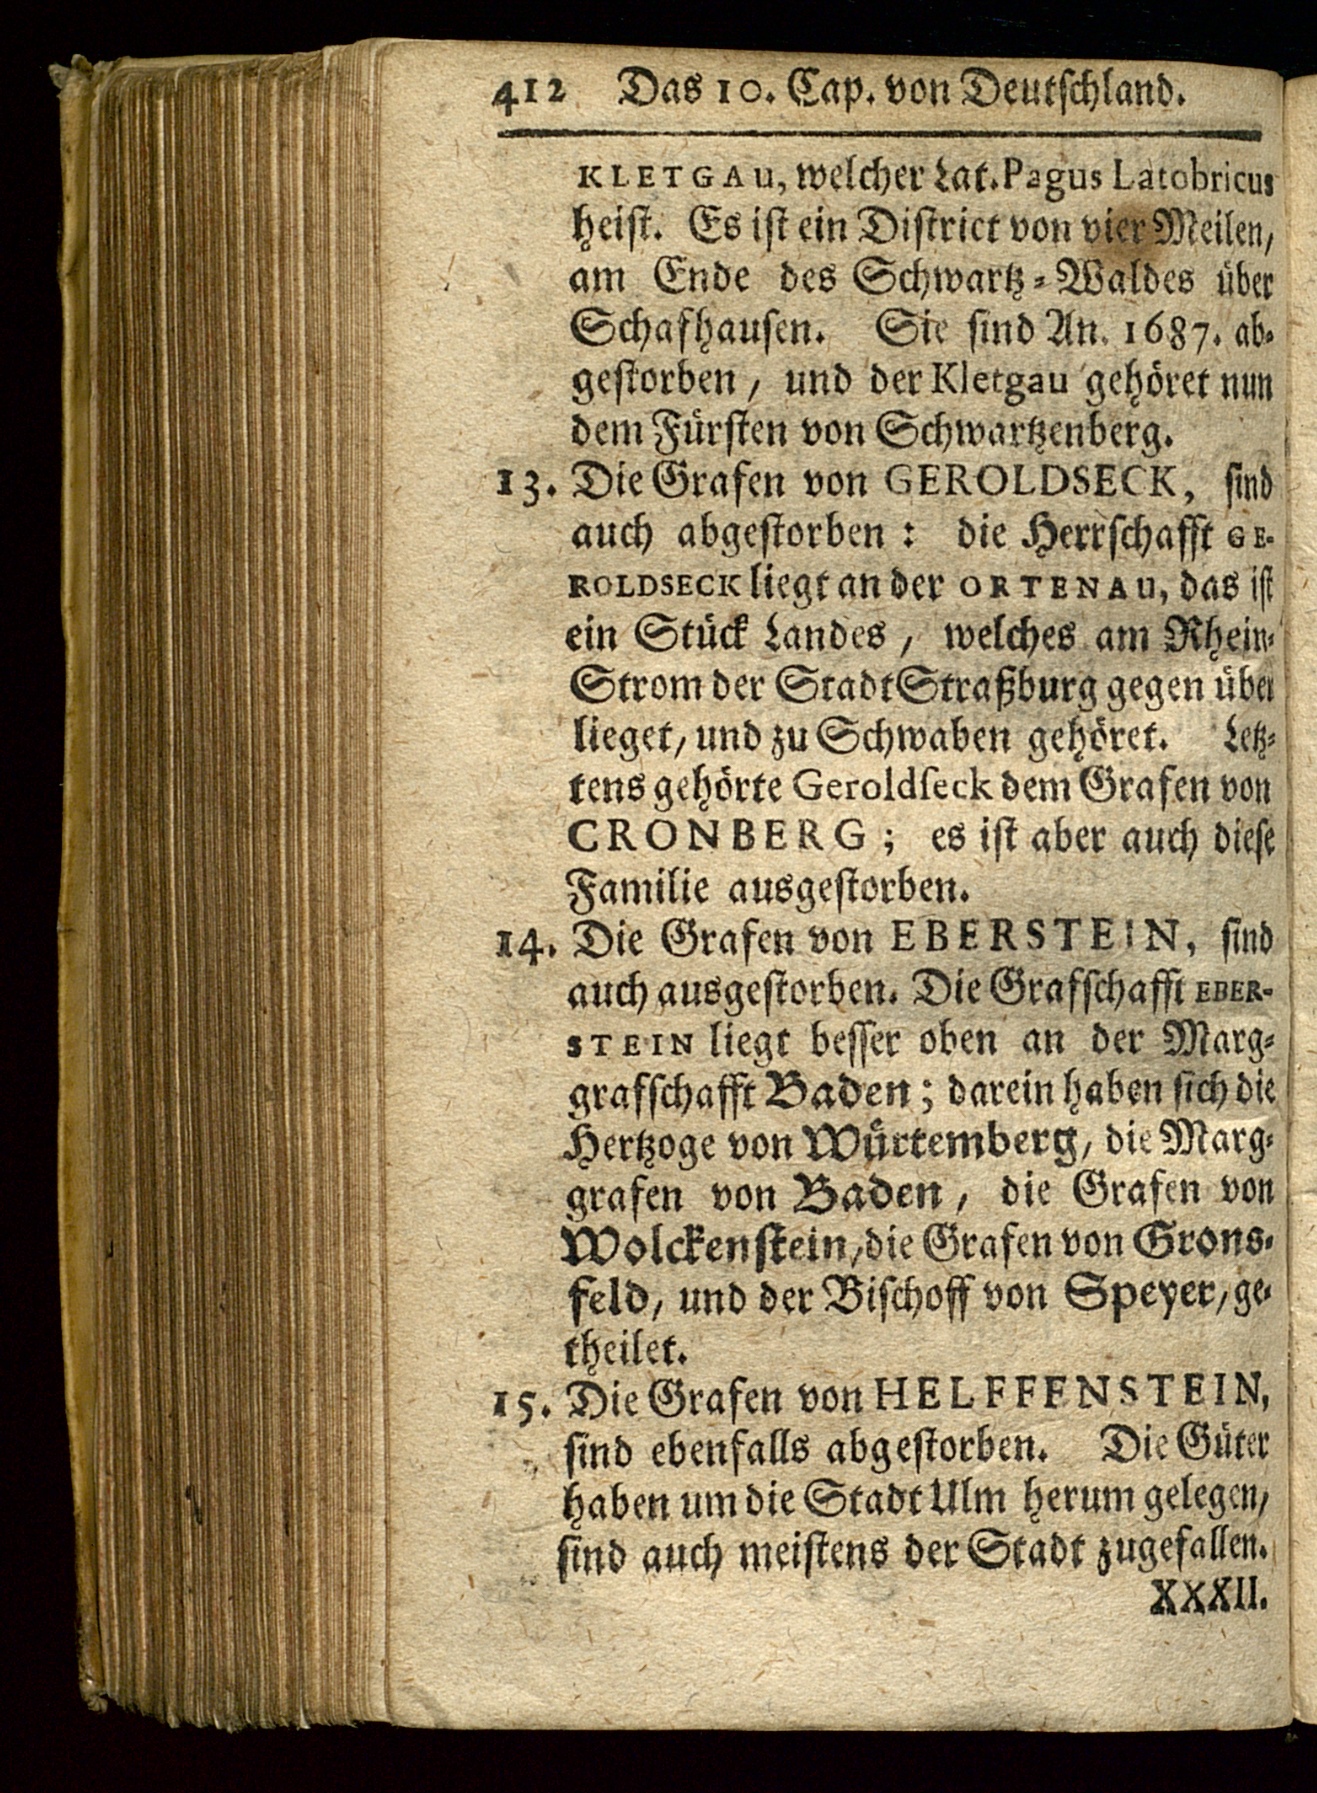 412 Das 10. Cap. von Deutschland.
KLETGAU, welcher Lat. Pagus Latobricus
heist. Es ist ein District von vier Meilen,
am Ende des Schwartz-Waldes über
Schafhausen. Sie sind An. 1687. ab-
gestorben, und der Kletgau gehöret nun
dem Fürsten von Schwartzenberg.
13. Die Grafen von GEROLDSECK, sind
auch abgestorben: die Herrschafft GE-
ROLDSECK liegt an der ORTENAU, das ist
ein Stück Landes, welches am Rhein-
Strom der Stadt Straßburg gegen über
lieget, und zu Schwaben gehöret. Letz-
tens gehörte Geroldseck dem Grafen von
CRONBERG; es ist aber auch diese
Familie ausgestorben.
14. Die Grafen von EBERSTEIN, sind
auch ausgestorben. Die Grafschafft EBER-
STEIN liegt besser oben an der Marg-
grafschafft Baden; darein haben sich die
Hertzoge von Würtemberg, die Marg-
grafen von Baden, die Grafen von
Wolckenstein, die Grafen von Grons-
feld, und der Bischoff von Speyer, ge-
theilet.
15. Die Grafen von HELFFENSTEIN,
sind ebenfalls abgestorben. Die Güter
haben um die Stadt Ulm herum gelegen,
sind auch meistens der Stadt zugefallen.
XXXII.